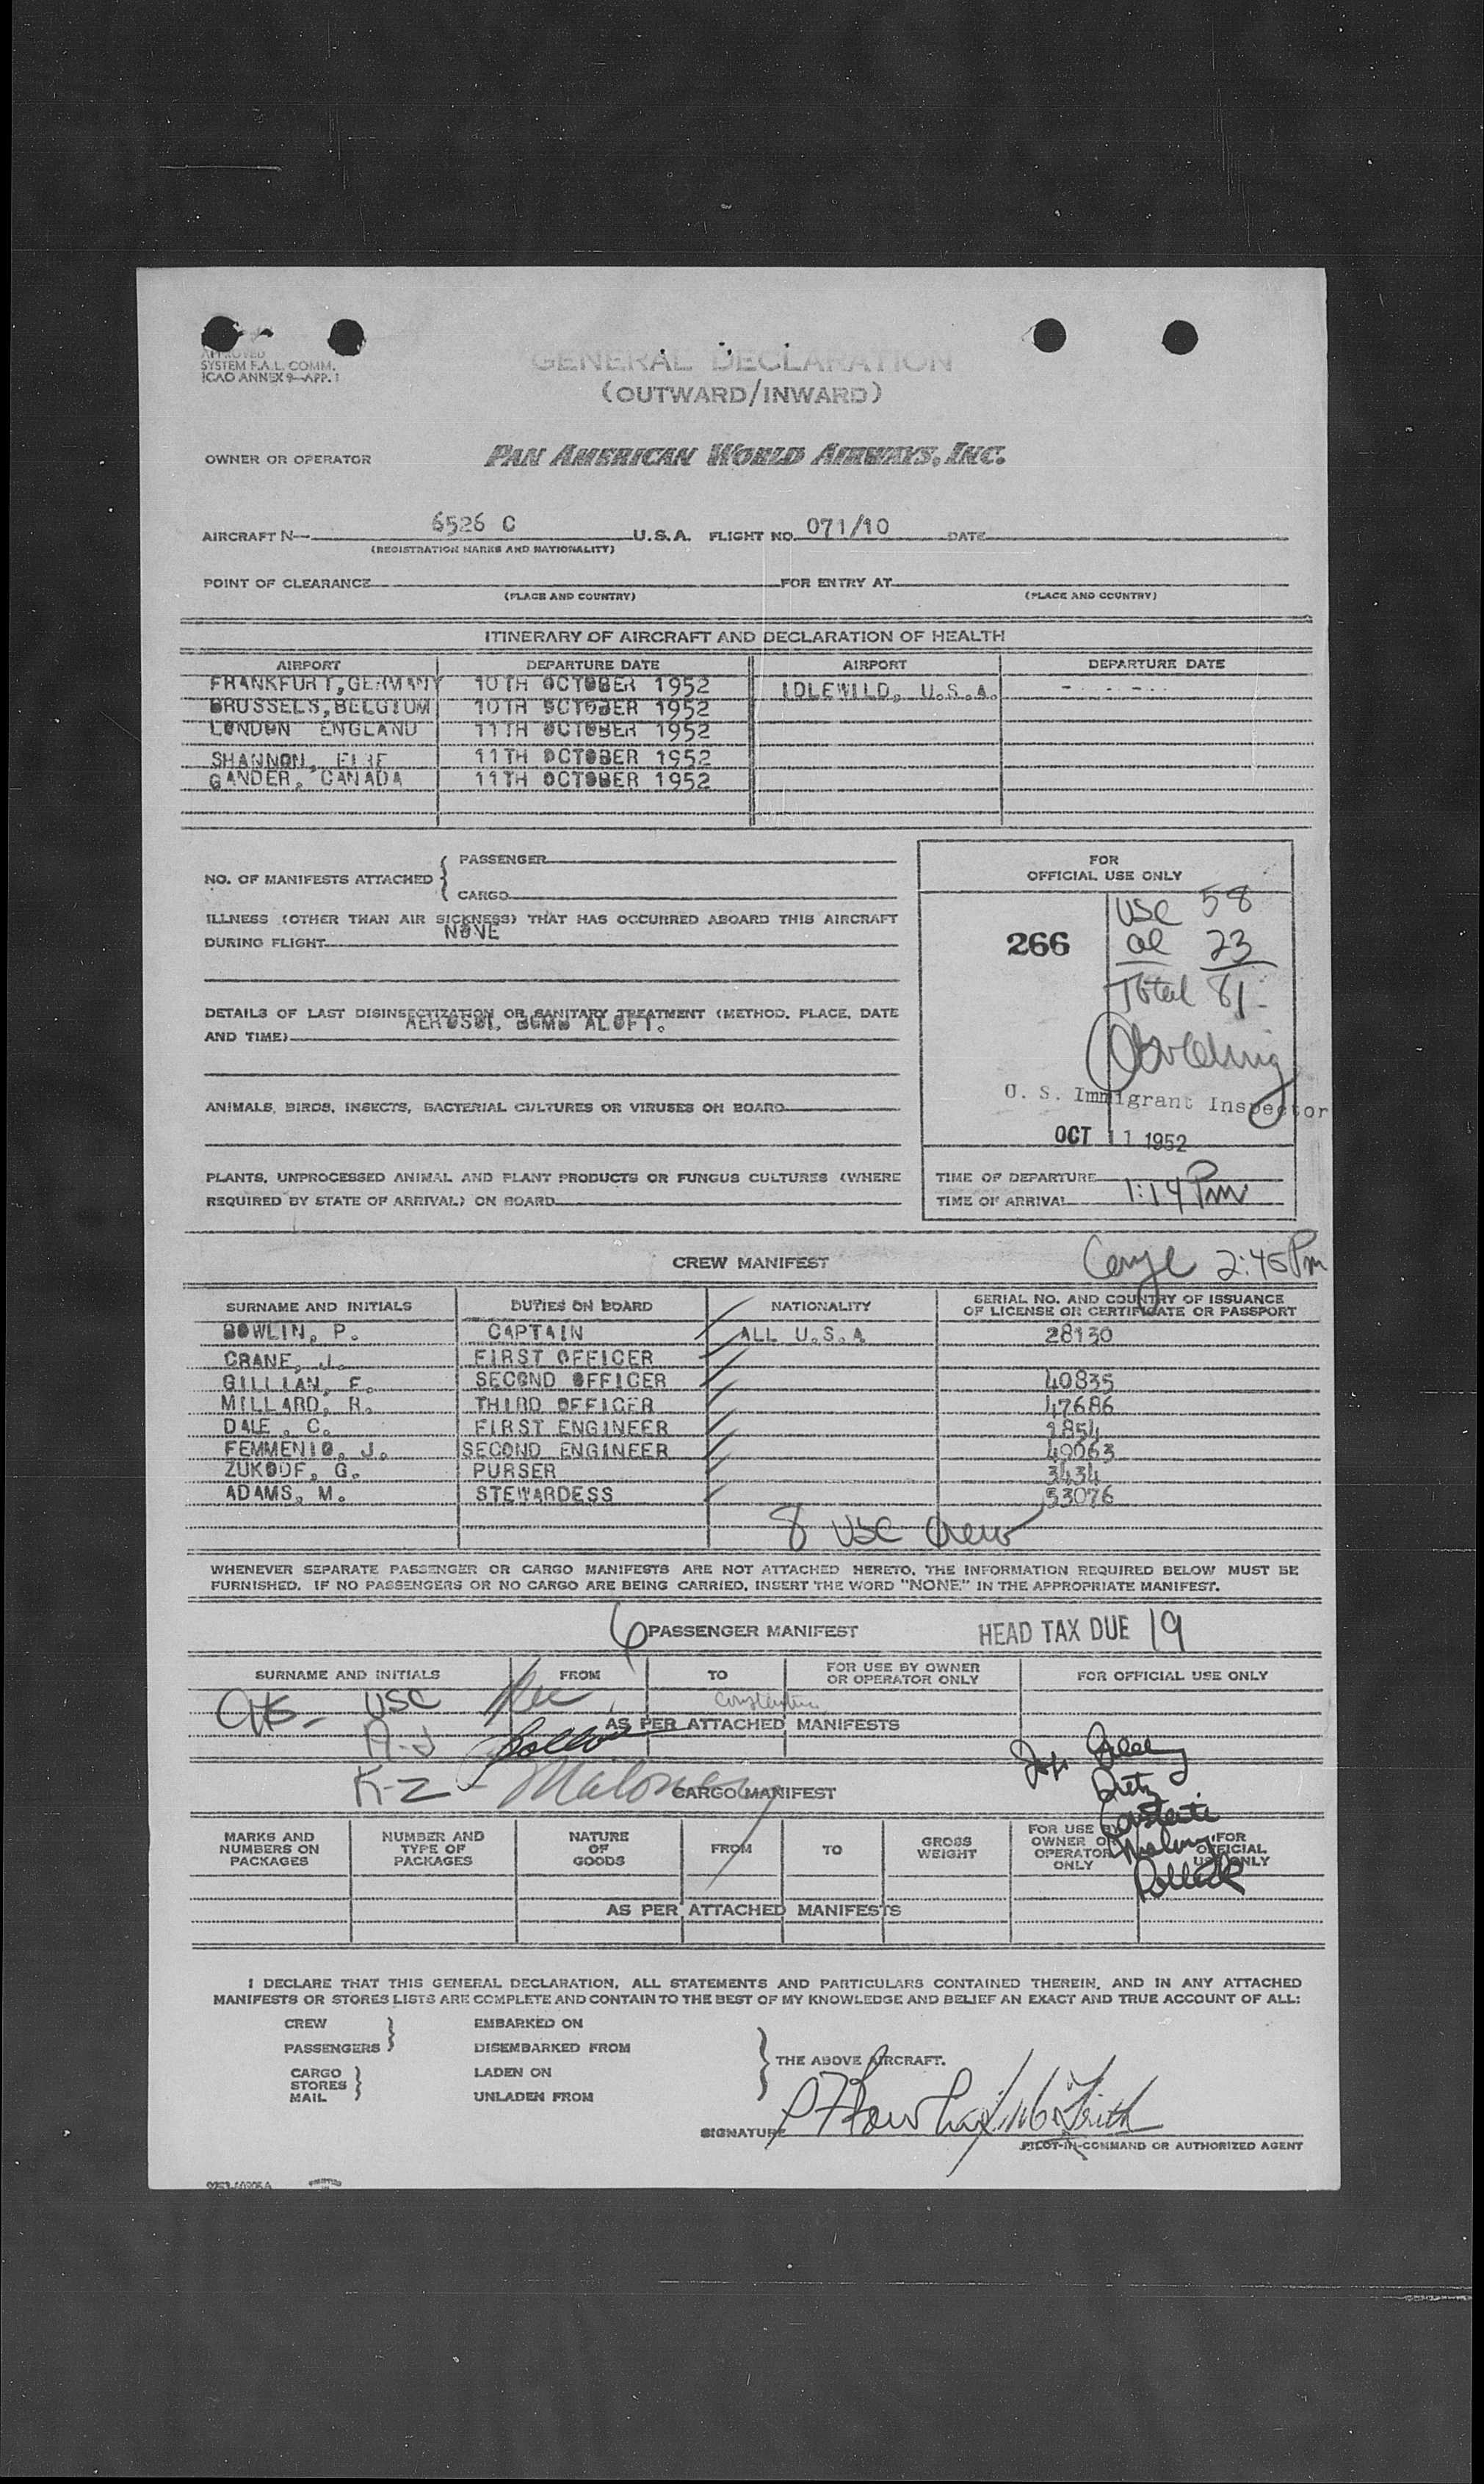 APPROVED
SYSTEM F.A.L. COMM.
ICAO ANNEX 9—APP. 1
GENERAL DECLARATION
(OUTWARD/INWARD)
OWNER OR OPERATOR PAN AMERICAN WORLD AIRWAYS, INC.
AIRCRAFT N— 6526 C U.S.A. FLIGHT NO. 071/10 DATE
(REGISTRATION MARKS AND NATIONALITY)
POINT OF CLEARANCE FOR ENTRY AT
(PLACE AND COUNTRY) (PLACE AND COUNTRY)
ITINERARY OF AIRCRAFT AND DECLARATION OF HEALTH
AIRPORT DEPARTURE DATE AIRPORT DEPARTURE DATE
FRANKFURT, GERMANY 10TH OCTOBER 1952 IDLEWILD, U.S.A. - - - - - -
BRUSSELS, BELGIUM 10TH OCTOBER 1952
LONDON ENGLAND 11TH OCTOBER 1952
SHANNON, EIRE 11TH OCTOBER 1952
GANDER, CANADA 11TH OCTOBER 1952
NO. OF MANIFESTS ATTACHED { PASSENGER
CARGO
ILLNESS (OTHER THAN AIR SICKNESS) THAT HAS OCCURRED ABOARD THIS AIRCRAFT
DURING FLIGHT NONE
DETAILS OF LAST DISINSECTIZATION OR SANITARY TREATMENT (METHOD, PLACE, DATE
AND TIME) AEROSOL BOMB ALOFT.
ANIMALS, BIRDS, INSECTS, BACTERIAL CULTURES OR VIRUSES ON BOARD
PLANTS, UNPROCESSED ANIMAL AND PLANT PRODUCTS OR FUNGUS CULTURES (WHERE
REQUIRED BY STATE OF ARRIVAL) ON BOARD
FOR
OFFICIAL USE ONLY
USC 58
266 al 23
Total 81
U. S. Immigrant Inspector
OCT 11 1952
TIME OF DEPARTURE
TIME OF ARRIVAL 1:14 Pm
CREW MANIFEST 2:45 Pm
SURNAME AND INITIALS DUTIES ON BOARD NATIONALITY SERIAL NO. AND COUNTRY OF ISSUANCE
OF LICENSE OR CERTIFICATE OR PASSPORT
BOWLIN, P. CAPTAIN ALL U.S.A 28130
CRANE, J. FIRST OFFICER
GILLIAN, F. SECOND OFFICER 40835
MILLARD, R. THIRD OFFICER 47686
DALE, C. FIRST ENGINEER 1854
FEMMENIO, J. SECOND ENGINEER 40063
ZUKOOF, G. PURSER 3434
ADAMS, M. STEWARDESS 53076
8 USC Crew
WHENEVER SEPARATE PASSENGER OR CARGO MANIFESTS ARE NOT ATTACHED HERETO, THE INFORMATION REQUIRED BELOW MUST BE
FURNISHED. IF NO PASSENGERS OR NO CARGO ARE BEING CARRIED, INSERT THE WORD "NONE" IN THE APPROPRIATE MANIFEST.
6 PASSENGER MANIFEST HEAD TAX DUE 19
SURNAME AND INITIALS FROM TO FOR USE BY OWNER
OR OPERATOR ONLY FOR OFFICIAL USE ONLY
USC
AS PER ATTACHED MANIFESTS
A-J
K-Z - Maloney
CARGO MANIFEST
MARKS AND
NUMBERS ON
PACKAGES NUMBER AND
TYPE OF
PACKAGES NATURE
OF
GOODS FROM TO GROSS
WEIGHT FOR USE BY
OWNER OR
OPERATOR
ONLY FOR
OFFICIAL
USE ONLY
Dietz
Pollack
AS PER ATTACHED MANIFESTS
I DECLARE THAT THIS GENERAL DECLARATION, ALL STATEMENTS AND PARTICULARS CONTAINED THEREIN, AND IN ANY ATTACHED
MANIFESTS OR STORES LISTS ARE COMPLETE AND CONTAIN TO THE BEST OF MY KNOWLEDGE AND BELIEF AN EXACT AND TRUE ACCOUNT OF ALL:
CREW EMBARKED ON
PASSENGERS DISEMBARKED FROM
THE ABOVE AIRCRAFT.
CARGO LADEN ON
STORES
MAIL UNLADEN FROM
SIGNATURE
PILOT-IN-COMMAND OR AUTHORIZED AGENT